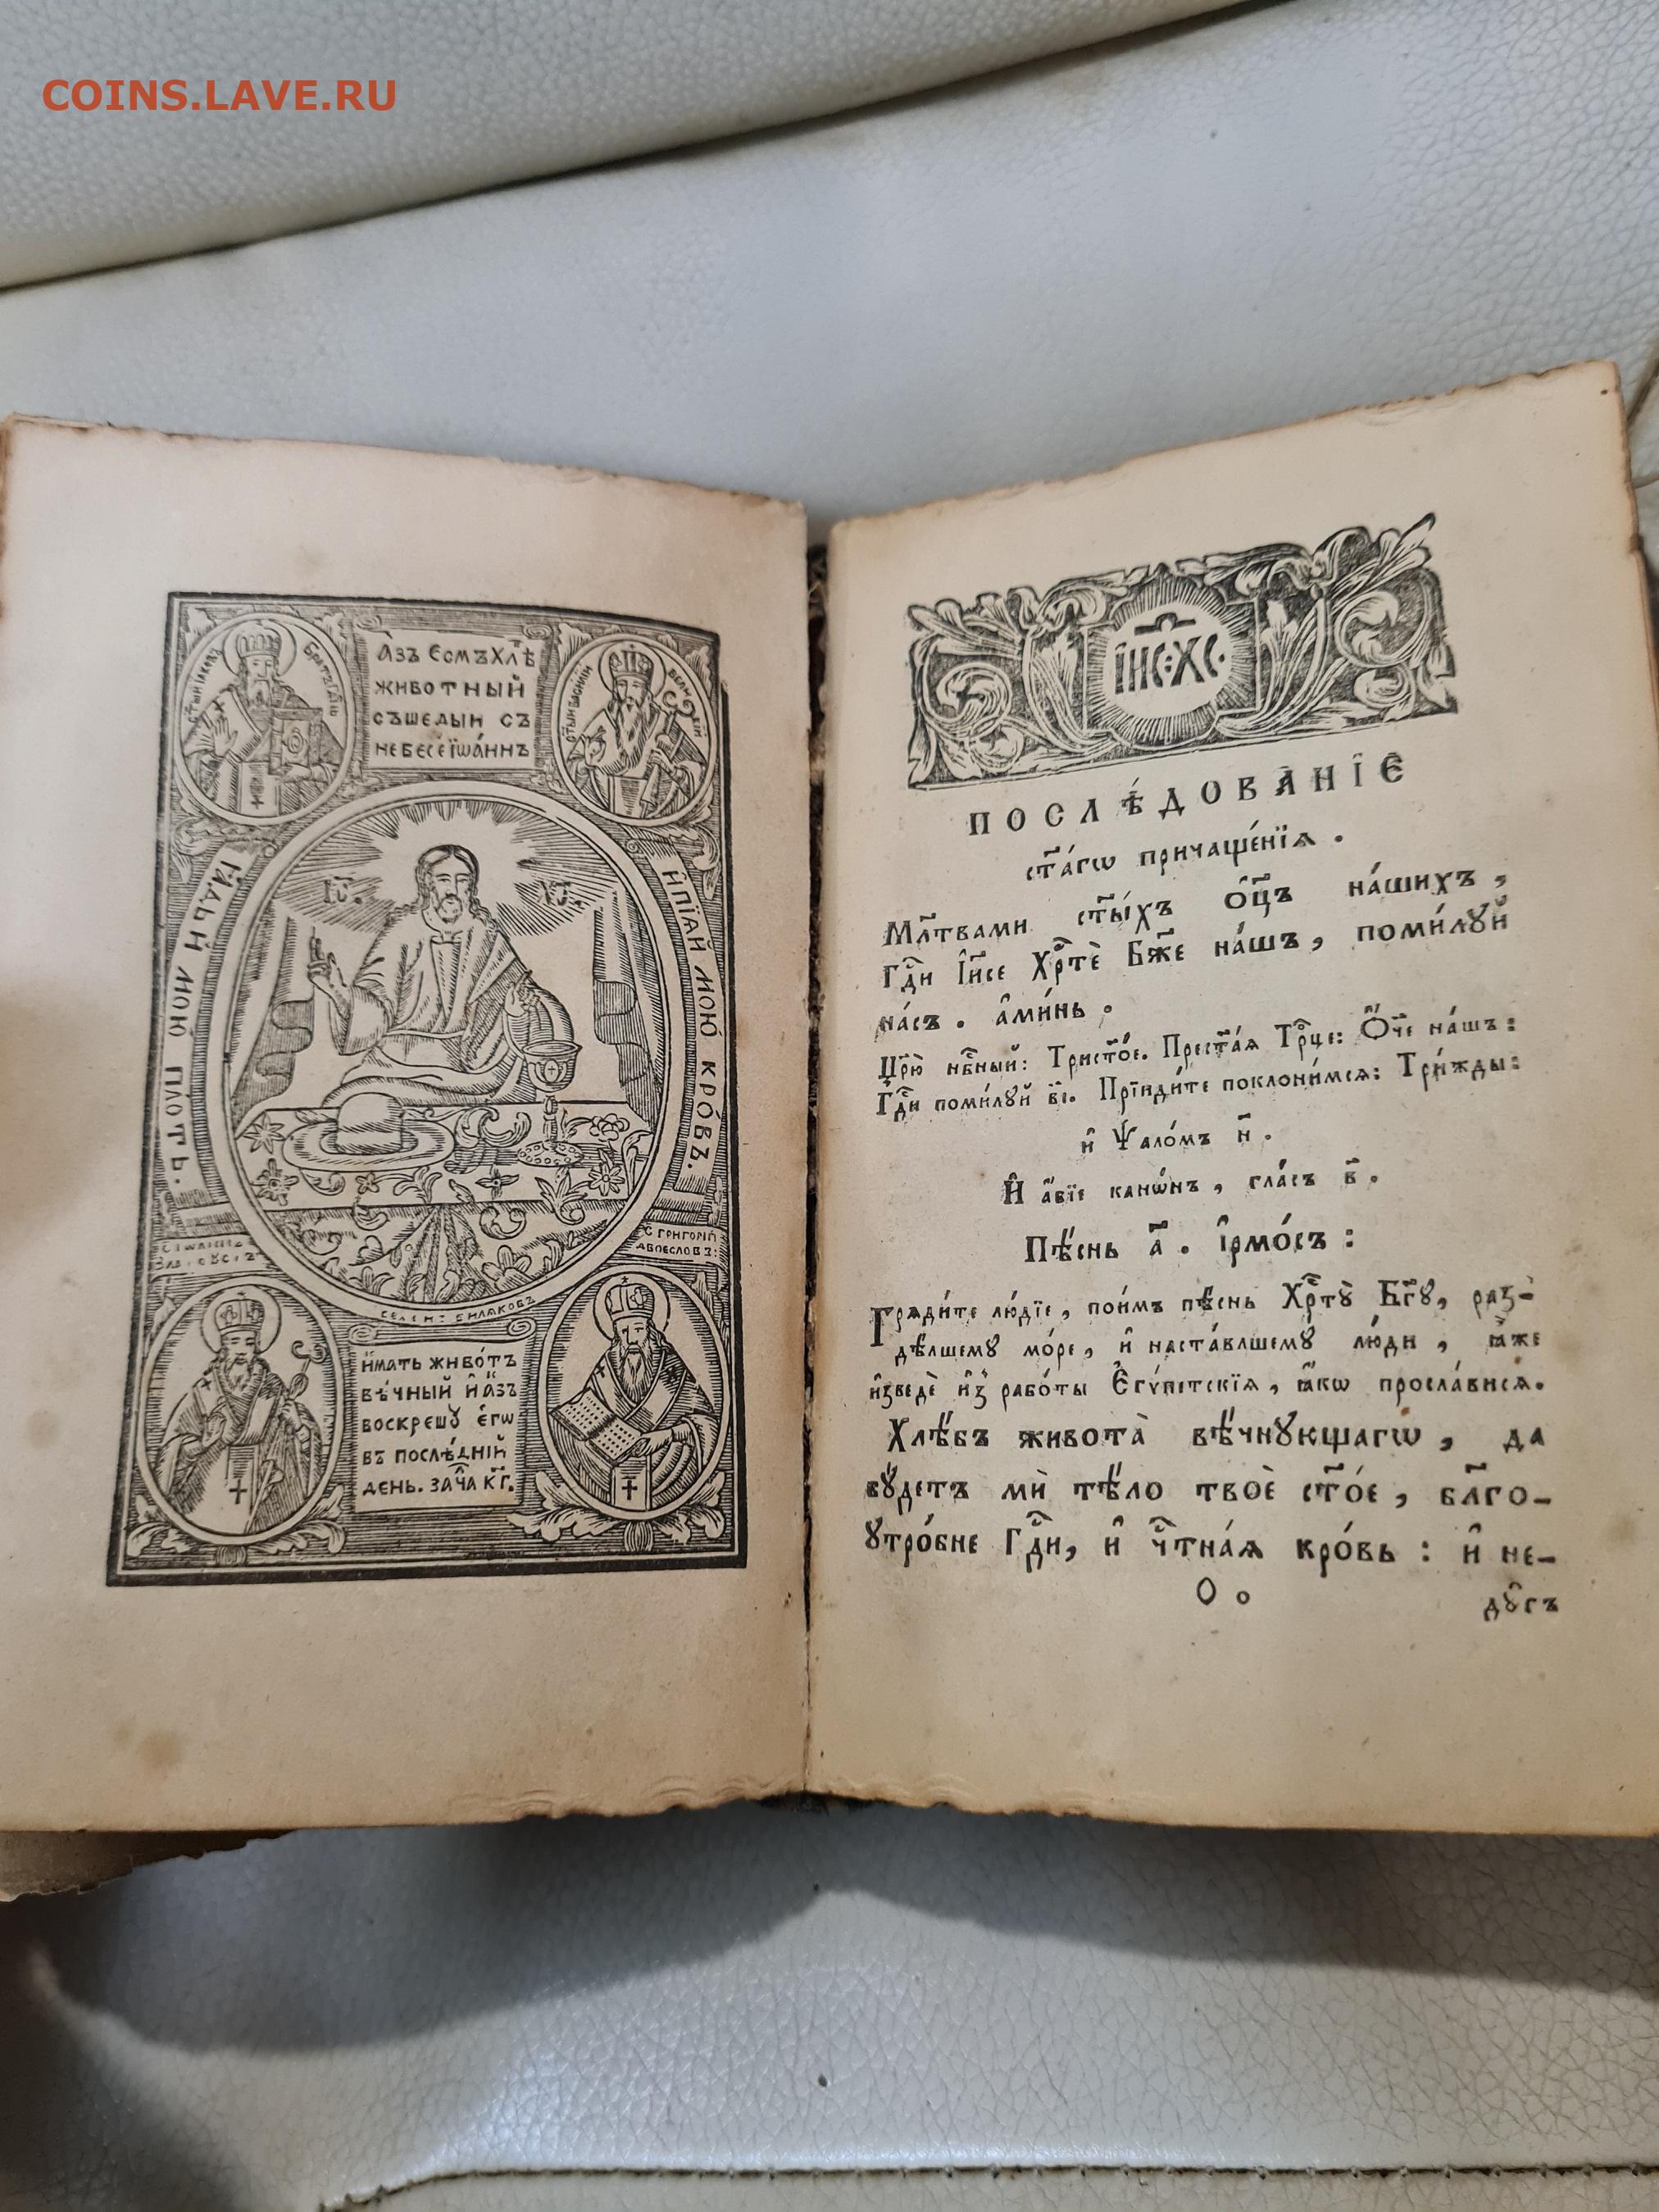 COINS.LAVE.RU
А҆́зъ Єсмъ Хлѣ
животный
съшедый съ
небесѐ Їѡа́ннъ
Ст҃ый Іаковъ Братъ
Ст҃ый Василий Великий
Їс҃. Хс҃.
І҆ꙗ́дый мою̀ пло́ть.
И҆ пїѧй мою̀ кро́въ.
С Григорїй
селеиз билаковъ
и҆́мать живо́тъ
вѣ́чный и҆ а҆́зъ
воскрешꙋ̀ є҆гѡ̀
въ послѣ́днїй
день. зача к҃г.
І҆и҃с. Х҃с.
ПОСЛѢ́ДОВАНЇЕ
ст҃а́гѡ причаще́нїѧ .
Мл҃твами ст҃ы́хъ ѻ҆ц҃ъ на́шихъ ,
гдⷭ҇и І҆и҃се Хрⷭ҇тѐ Бж҃е на́шъ , поми́лꙋй
на́съ . а҆ми́нь .
Цр҃ю̀ нбⷭ҇ный: Трист҃о́е. Прест҃а́ѧ Трⷪ҇це: Ѻ҆́ч҃е на́шъ:
Гдⷭ҇и поми́лꙋй в҃і. Прїиди́те поклони́мсѧ: Три́жды:
и҆ Ѱало́мъ н҃ .
И҆ а҆́бїе канѡ́нъ , гла́съ в҃ .
Пѣ́снь а҃ . і҆рмо́съ :
Грѧди́те лю́дїе , пои́мъ пѣ́снь Хрⷭ҇тꙋ̀ Бг҃ꙋ , раз-
дѣ́лшемꙋ мо́ре , и҆ наста́влшемꙋ лю́ди , ꙗ҆̀же
и҆зведѐ и҆з̾ рабо́ты Є҆гѵ́петскїѧ , ꙗ҆́кѡ просла́висѧ .
Хлѣ́бъ живота̀ вѣ́чнꙋющагѡ , да
бꙋ́детъ мѝ тѣ́ло твоѐ ст҃о́е , бл҃го-
ꙋтро́бне Гдⷭ҇и , и҆ чⷭ҇тна́ѧ кро́вь : и҆ не-
О о
дꙋ́гъ